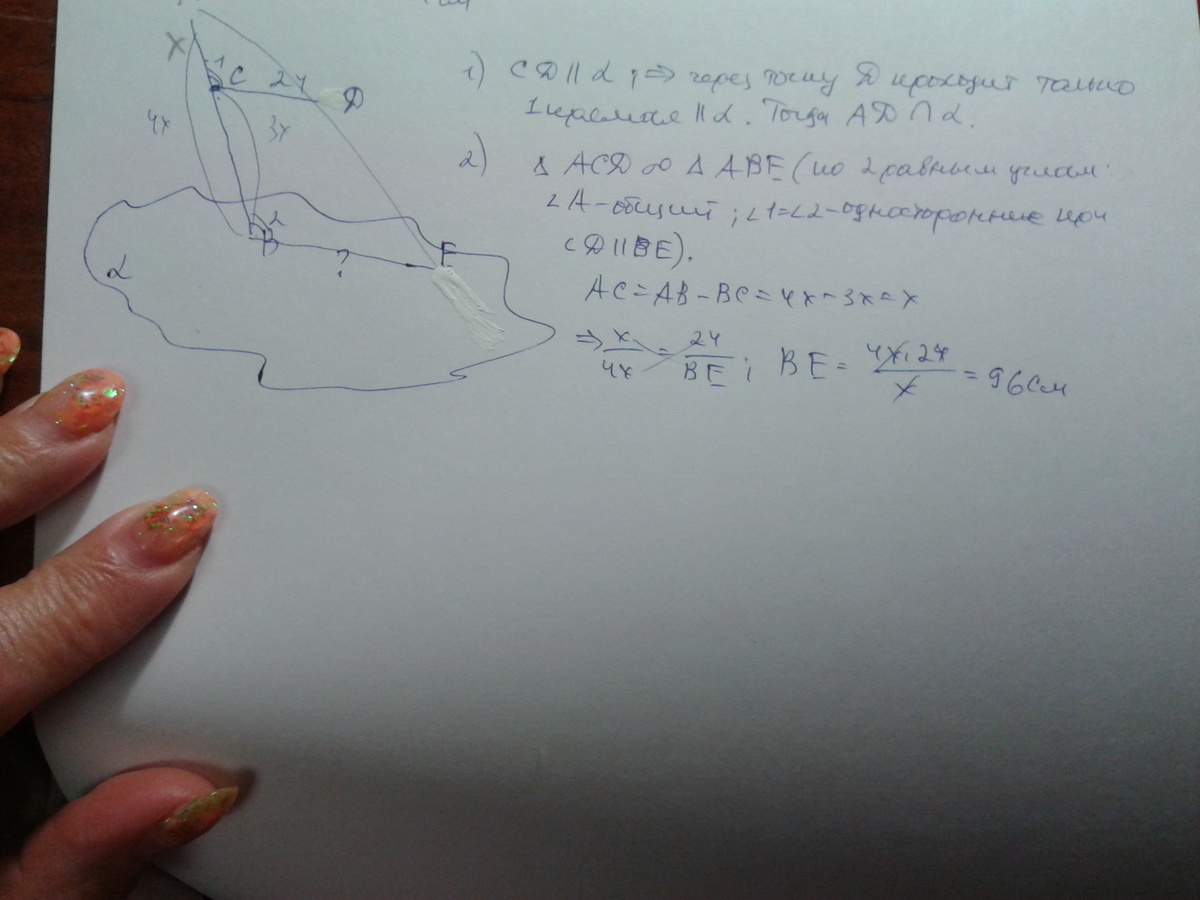 X
1
C
24
D
4x
3x
2
B
?
E
α
1) CD || α ; ⇒ через точку D проходит только
1 прямая || α. Тогда AD ∩ α.
2) Δ ACD ∾ Δ ABE (по 2 равным углам:
∠A - общий ; ∠1=∠2 - односторонние при
CD || BE).
AC = AB - BC = 4x - 3x = x
⇒ x/4x = 24/BE ; BE = 4x·24/x = 96 см